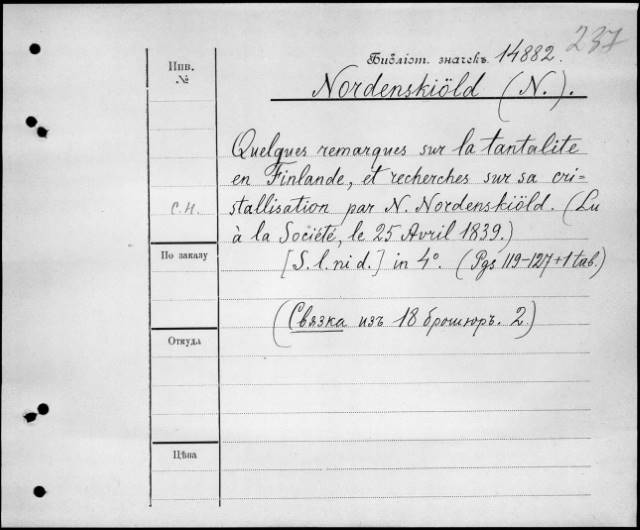 237
Библіот. значекъ. 14882.
Инв.
№
Nordenskiöld (N.).
Quelques remarques sur la tantalite
en Finlande, et recherches sur sa cri=
С.Н.
stallisation par N. Nordenskiöld. (Lu
à la Société, le 25 Avril 1839.)
По заказу
[S. l. ni d.] in 4°. (Pgs 119-127+1 tab.)
(Связка изъ 18 брошюръ. 2)
Откуда
Цѣна